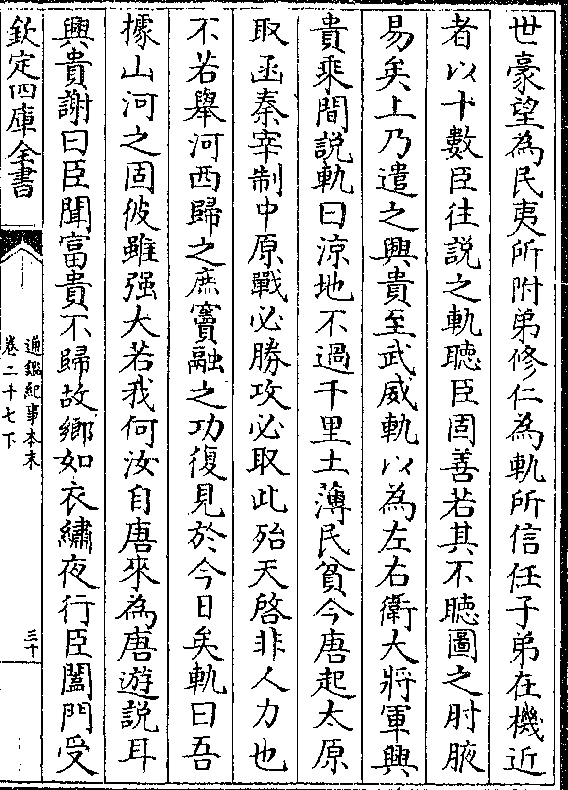 世豪望為民夷所附弟修仁為軌所信任子弟在機近
者以十數臣往說之軌聽臣固善若其不聽圖之肘腋
易矣上乃遣之興貴至武威軌以為左右衛大將軍興
貴乘間說軌曰涼地不過千里土薄民貧今唐起太原
取函秦宰制中原戰必勝攻必取此殆天啓非人力也
不若舉河西歸之庶竇融之功復見於今日矣軌曰吾
據山河之固彼雖强大若我何汝自唐來為唐游說耳
興貴謝曰臣聞富貴不歸故鄉如衣繡夜行臣闔門受
欽定四庫全書
通鑑紀事本末
卷二十七下
三十